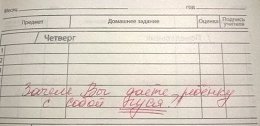 Месяц
год
Предмет Домашнее задание Оценка Подпись учителя
Четверг
Зачем Вы даёте ребёнку
с собой гуся?